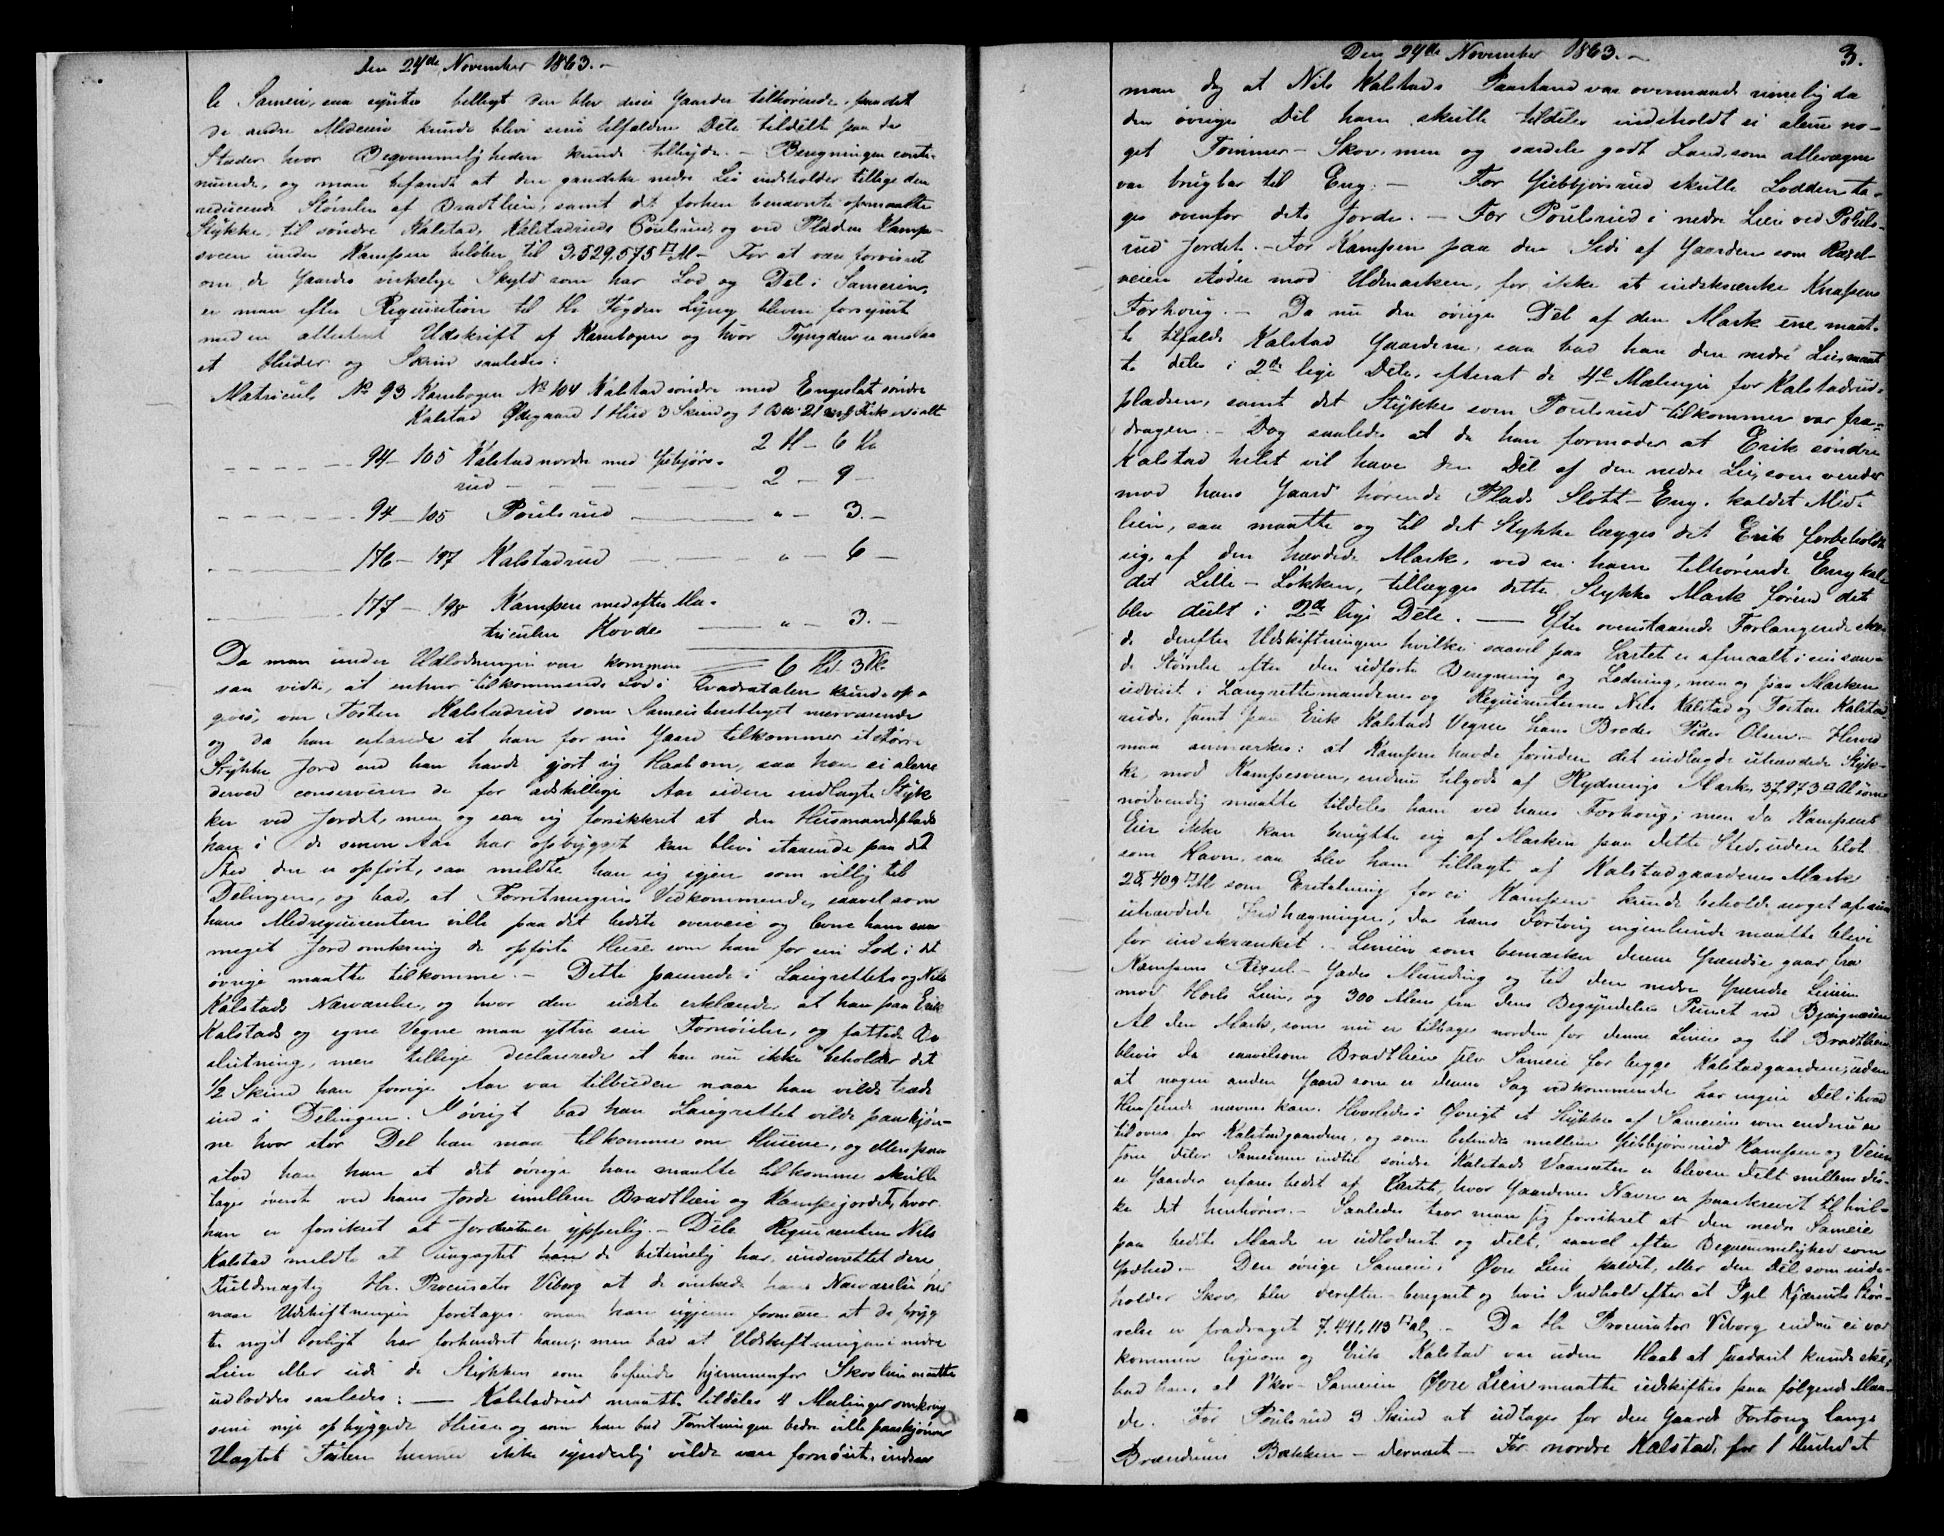 Den 24de November 1863.-
le Sameie, saa syntes billigt den blev disse Gaarder tilhørende, paa det
de andre Medeiere kunde blive sine tilfaldne Dele tildelt paa de
Steder hvor Beqvemmeligheden kunde tilbyde. - Beregningen conti-
nuerede, og man befandt at den gandske nedre Lie indholder tillige den
reducerede Størrelse af Bradtlien, samt det forhen benævnte opmaalte
Stykke til søndre Kalstad, Kalstadruds Poulsrud, og ved Pladsen Kamp-
sveen under Kampen beløber til 3,529,575 □ Al - For at være forvisset
om de Gaardes virkelige Skyld som har Lod og Del i Sameien,
er man efter Requisition til Hr Fogden Lyng bleven forsynet
med en attesteret Udskrift af Kambogen og hvor Tyngden er ansat
et Huder og Skind saaledes:
Matricul No 93 Kambogen No 104 Kalstad søndre med Engeslæt søndre
Kalstad Ødegaard 1 Hud 3 Skind og 1 er i alt
2 H - 6 Sk
94 - 105 Kalstad nordre med Gibbjørs-
rud - - - 2 - 9 -
94 - 105 Poulsrud " - 3. -
176 - 197 Kalstadrud - " - 6 -
177 - 198 Kampen med efter Ma-
triculen Hovde " - 3. -
6 Hd 3 Sk.
Da man under Udlodningen var kommen
saa vidt, at enhver tilkommende Lod i Qvadratalen kunde op-
gives, var Tosten Kalstadrud som Sameieberettiget nærværende
og da han erfarede at han for sin Gaard tilkommer et større
Stykke Jord end han havde gjort sig Haab om, saa han ei alene
derved conserverer de for adskillige Aar siden indlagte Styk
ker ved Jordet, men og saa sig forsikkret at den Husmandsplads
han i de senere Aar har opbygget kan blive staaende paa det
Sted den er opført, saa meldte han sig igjen som villig til
Delingen, og bad, at Forretningens Vedkommende, saavel som
hans Medrequirenter ville paa det bedste overveie og levne ham saa
meget Jord omkring de opførte Huse som han for sin Lod i det
øvrige maatte tilkomme. - Dette passerede i Laugrettets og Nils
Kalstads Nærværelse, og hvor den sidste erklærede at han paa Erik
Kalstads og egne Vegne maa yttre sin Fornøielse, og fattede Be
slutning, men tillige declarerede at han nu ikke beholder det
1/2 Skind han forrige Aar var tilbuden naar han vilde træde
ind i Delingen. I øvrigt bad han Laugrettet vilde paaskjøn-
ne hvor stor Del han maa tilkomme om Husene, og ellers paa
stod han at det øvrige han maatte tilkomme skulle
tages øverst ved hans Jorde imellem Bradtlien og Kampejordet, hvor
han er forsikret at Jordarten er ypperlig. - Dels Requirenten Nils
Kalstad meldte at uagtet han de betimelig har underrettet deres
Fuldmægtig Hr. Procurator Viborg at de ønskede hans Nærværelse her
naar Udskiftningen foretages, maa han igjen formene at de bryg
te noget ovligt har forhindret ham; men bad at Udskiftningen i nedre
Lien eller udi de Stykker som befindes hjemmenfor Skovlien maatte
udloddes saaledes: - Kalstadrud maatte tildeles 4 Mælinger omkring
sine nye opbyggede Huse og som han bad Forretningen bedre ville paaskjønne
Uagtet Tosten hermed ikke synderlig vilde være fornøiet, indsaa
Den 24de November 1863.-
3.
man dog at Nils Kalstads Paastand var overmaade rimelig da
den øvrige Del ham skulle tildeles indeholdt ei alene no-
get Tømmer-Skov, men og særdeles godt Land, som allevegne
var brugbar til Eng. - For Gibbjørsrud skulle Lodden ta-
ges ovenfor dets Jorde. - For Poulsrud i nedre Lien ved Pouls-
rud Jordet. - For Kampen paa den Side af Gaarden som Ræsel-
veien støder mod Udmarken, for ikke at indskrænke Kampens
Forhong. - Da nu den øvrige Del af den Mark ene maat-
te tilfalde Kalstad Gaardene, saa bad han den nedre Lie maat
te deles i 2de lige Dele, efterat de 4e Mælinger for Kalstadrud-
pladsen, samt det Stykke som Poulsrud tilkommer var fra-
dragen. - Dog saaledes at da han formoder at Erik søndre
Kalstad helst vil have den Del af den nedre Lie, som vender
mod hans Gaard hørende Plads Slott-Eng, kaldet Mid-
lien, saa maatte og til det Stykke lægges det Erik forbeholdt
sig af den hævdede Mark, ved en ham tilhørende Eng kal-
det Lille-Løkken, tillægges dette Stykke Mark førend det
blev deelt i 2de lige Dele. - Efter ovenstaaende Forlangende ske-
de derefter Udskiftningen hvilke saavel paa Cartet er afmaalt i sin san-
de Størrelse efter den udførte Beregning og Lodning, men og paa Marken
udviist i Laugrettemændenes og Requirenternes Nils Kalstad og Tosten Kalstad
ruds, samt paa Erik Kalstads Vegne hans Broder Peder Olsen. - Herved
maa anmærkes: at Kampen havde foruden det indlagde uhævdede Styk-
ke, mod Kampesveen, endnu tilgode af Rydnings Mark 37,973 □ Al som
nødvendig maatte tildeles ham ved hans Forhong; men da Kampens
Eier ikke kan benytte sig af Marken paa dette Sted, uden blot
som Havn, saa blev ham tillagt af Kalstadgaardenes Mark
28,409 □ Al som Erstatning for ei Kampen kunde beholde noget af sine
uhævdede Indhægninger, da hans Fortong ingenlunde maatte blive
for indskrænket. - Linien som bemærker denne Grændse gaar fra
Kampens Ræsel-Gades Munding og til den nedre Grændse Linien
mod Hovls Lien, og 300 Alen fra dens Begyndelses Punct ved Bjørgnæsien
Al den Mark, som nu er tilbage norden for denne Linie og til Bradtlien
blevir da saavelsom Bradtlien selv Sameie for begge Kalstadgaardene, uden
at nogen anden Gaard som er denne Sag vedkommende har ingen Del i hvad
Henseende nævnes kan. Hvorledes i Øvrigt et Stykke af Sameien som endnu er
tilovers for Kalstadgaardene, og som befindes mellem Gibbjørsrud Kampen og Veien
som deler Sameierne indtil søndre Kalstads Vaarsæter er bleven delt mellem dis-
se Gaarder erfares bedst af Cartet, hvor Gaardenes Navne er paaskrevet til hvil-
ke det henhører. - Saaledes troer man sig forsikret at den nedre Sameie
paa bedste Maade er udloddet og delt, saavel efter Beqvemmelighed som
Godhed. - Den øvrige Sameie, Øvre Lien kaldet, eller den Del som inde-
holder Skov, blev derefter beregnet og hvis Indhold efter at Igl Kjærnets Stør-
relse er fradraget 7,441,113 □ Al, - Da Hr Procurator Viborg endnu ei var
kommen ligesom og Erik Kalstad var uden Haab at saadant kunde ske,
bad han, at Skov-Sameien Øvre Lien maatte udskiftes paa følgende Maa-
de. For Poulsrud 3 Skind at udtages for den Gaards Fortong langs
Brændenes Bækken - dernæst - For nordre Kalstad, for 1 Hud at